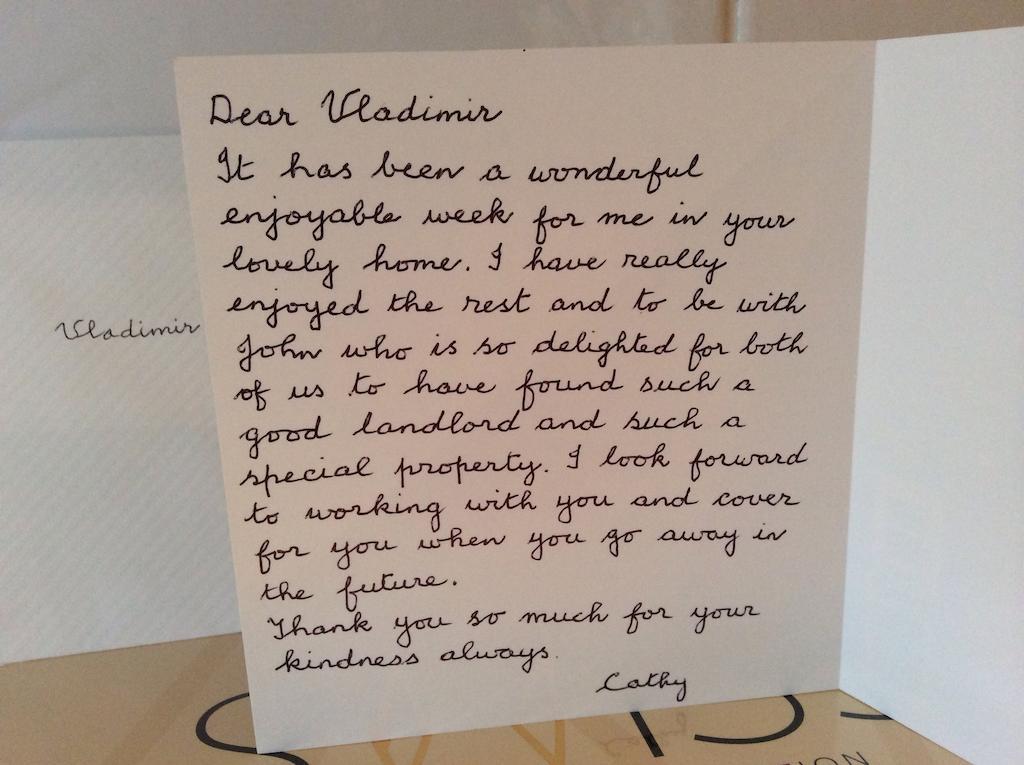 Dear Vladimir
It has been a wonderful
enjoyable week for me in your
lovely home. I have really
enjoyed the rest and to be with
John who is so delighted for both
of us to have found such a
good landlord and such a
special property. I look forward
to working with you and cover
for you when you go away in
the future.
Thank you so much for your
kindness always.
Cathy
Vladimir